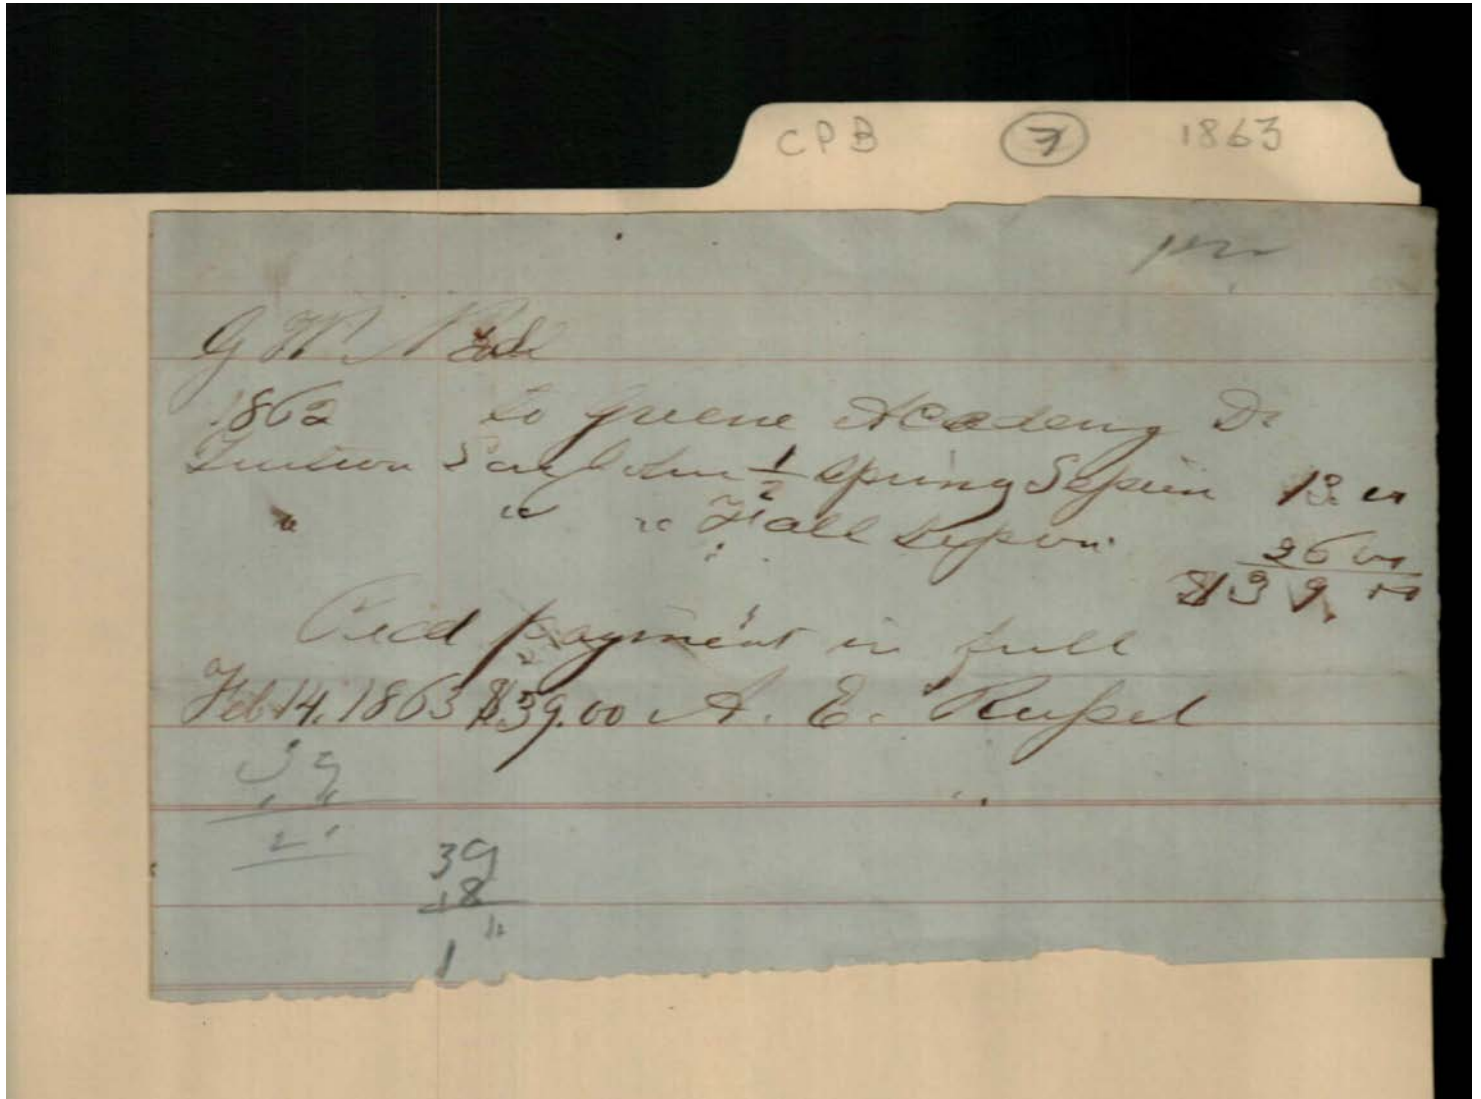 CPB 7 1863
G W
1862 To Greene Academy Dr
Tuition 1/2 Spring Session 13 00
" " " Fall Session 26 00
$39 00
Recd payment in full
Feb 14, 1863 $39.00 A. E. Russel
39
39
18
1